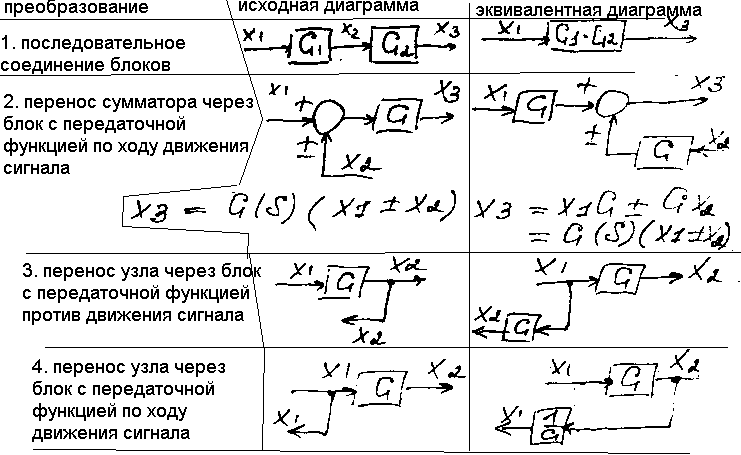 преобразование исходная диаграмма эквивалентная диаграмма
1. последовательное
соединение блоков
X1 G1 X2 G2 X3
X1 G1·G2 X3
2. перенос сумматора через
блок с передаточной
функцией по ходу движения
сигнала
X1 + G X3
± X2
X1 G + X3
± G X2
X3 = G(S)(X1 ± X2)
X3 = X1G ± GX2
= G(S)(X1±X2)
3. перенос узла через блок
с передаточной функцией
против движения сигнала
X1 G X2
X2
X1 G X2
X2 G
4. перенос узла через
блок с передаточной
функцией по ходу
движения сигнала
X1 G X2
X1
X1 G X2
X1 1/G